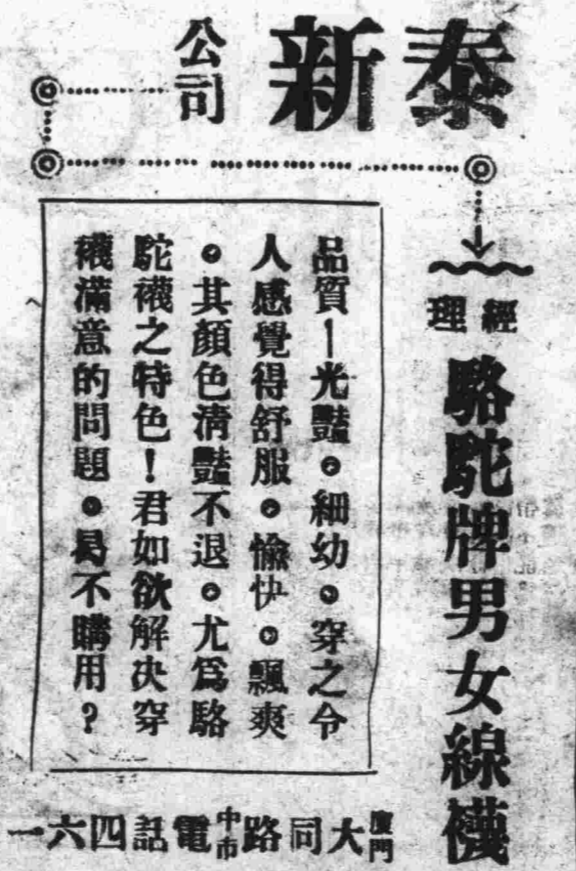 泰新公司
經理
駱駝牌男女線襪
品質―光豔。細幼。穿之令
人感覺得舒服。愉快。飄爽
。其顏色清豔不退。尤爲駱
駝襪之特色！君如欲解决穿
襪滿意的問題。曷不購用？
廈門大同路中市電話四六一